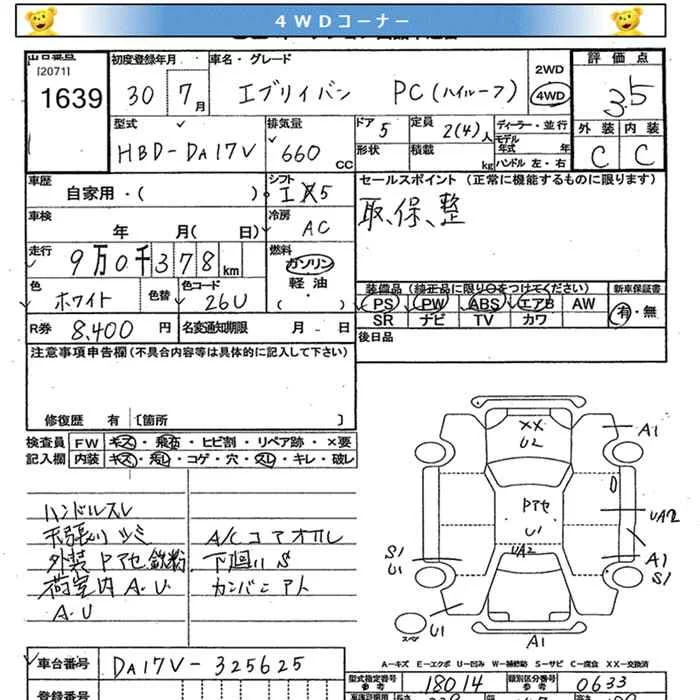 4WDコーナー
出品番号
[2071]
1639
初度登録年月
30 7月
車名・グレード
エブリイバン PC(ハイルーフ)
2WD
4WD
評価点
3.5
外装 内装
C C
型式
HBD-DA17V
排気量
660 CC
ドア 5
形状
定員 2(4)人
積載 kg
ディーラー・並行
モデル年式 年
ハンドル 左・右
車歴
自家用・( )
シフト
車検
年 月( 日)
冷房
AC
走行
9万0千378km
燃料
ガソリン
軽油
・
( )
セールスポイント (正常に機能するものに限ります)
取、保、整
色
ホワイト
色替
色コード
26U
装備品 (純正品に限り○をつけてください)
PS PW ABS エアB AW
SR ナビ TV カワ
新車保証書
有・無
R券 8,400円
名変通知期限 月 日
後日品
注意事項申告欄(不具合内容等は具体的に記入して下さい)
修復歴 有 [箇所 ]
検査員 FW キズ・飛石・ヒビ割・リペア跡・×要
記入欄 内装 キズ・汚レ・コゲ・穴・スレ・キレ・破レ
ハンドルスレ
天張リ シミ
外装 Pアセ 鉄粉
荷室内 A・U
A・U
A/Cコアオレ
下廻リ S
XX
U2
A1
D
Pアセ
U1
UA2
UA2
S1
U1
A1
S1
U1
スペア
A1
A-キズ E-エクボ U-凹み W-補修跡 S-サビ C-腐食 XX-交換済
車台番号 DA17V-325625
登録番号
型式指定番号 参考 18014
類別区分番号 参考 0633